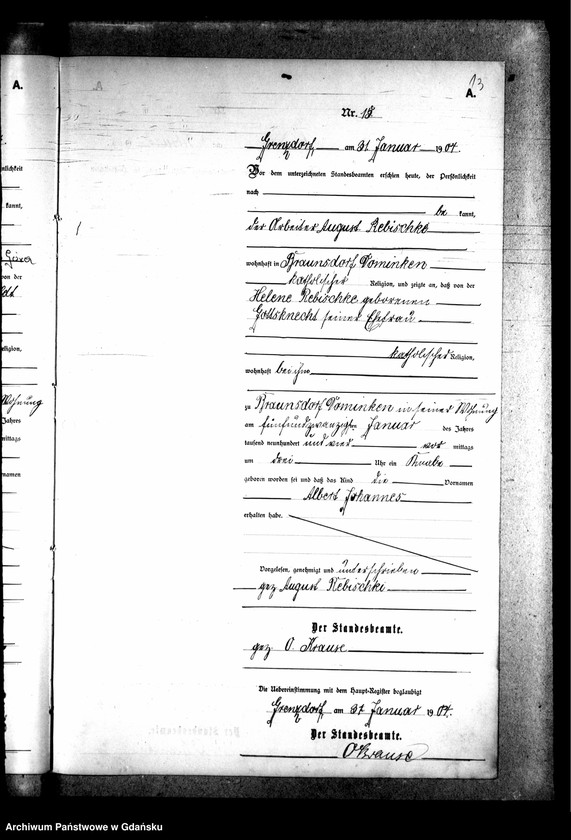 A.
13
A.
Nr. 15
Grenzdorf, am 31 Januar 1904.
Vor dem unterzeichneten Standesbeamten erschien heute, der Persönlichkeit
nach
be kannt,
der Arbeiter August Rebischke
wohnhaft in Braunsdorf Dominken
katholischer Religion, und zeigte an, daß von der
Helene Rebischke geborenen
Gottsknecht seiner Ehefrau
katholischer Religion,
wohnhaft bei ihm
zu Braunsdorf Dominken in seiner Wohnung
am fünfundzwanzigsten Januar des Jahres
tausend neunhundert und vier vor mittags
um drei Uhr ein Knabe
geboren worden sei und daß das Kind die Vornamen
Albert Johannes
erhalten habe.
Vorgelesen, genehmigt und unterschrieben
gez August Rebischki
Der Standesbeamte.
gez O. Krause
Die Uebereinstimmung mit dem Haupt-Register beglaubigt
Grenzdorf am 31 Januar 1904.
Der Standesbeamte.
O Krause
nlichkeit
kannt,
von der
eligion,
Wohnung
Jahres
mittags
rnamen
Archiwum Państwowe w Gdańsku